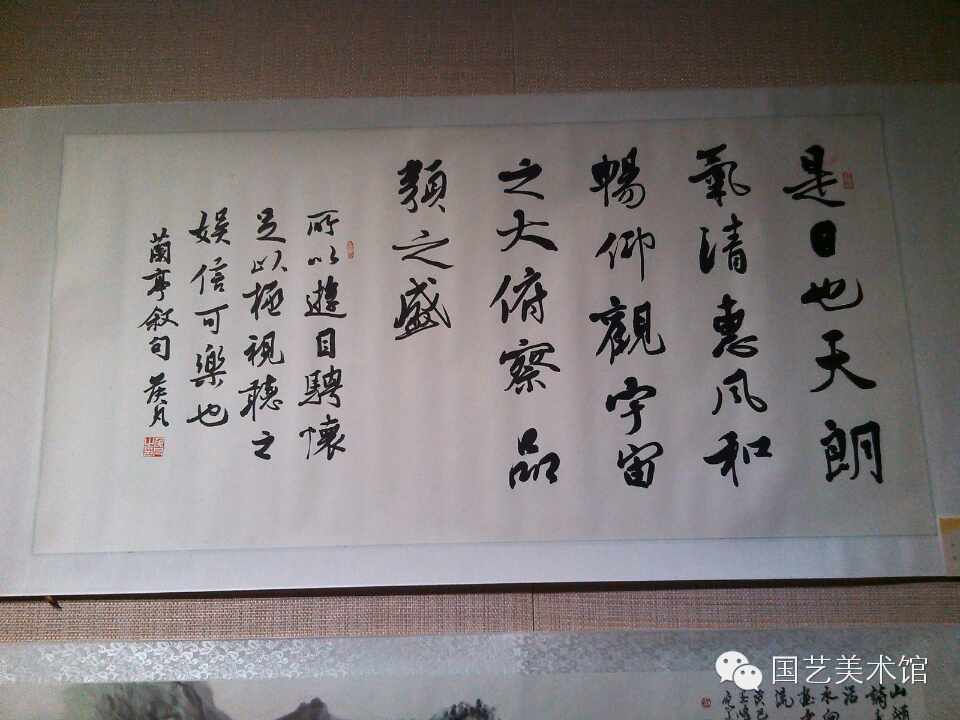 是日也天朗
氣清惠風和
暢仰觀宇宙
之大俯察品
類之盛
所以遊目騁懷
足以極視聽之
娱信可樂也
蘭亭叙句
国艺美术馆